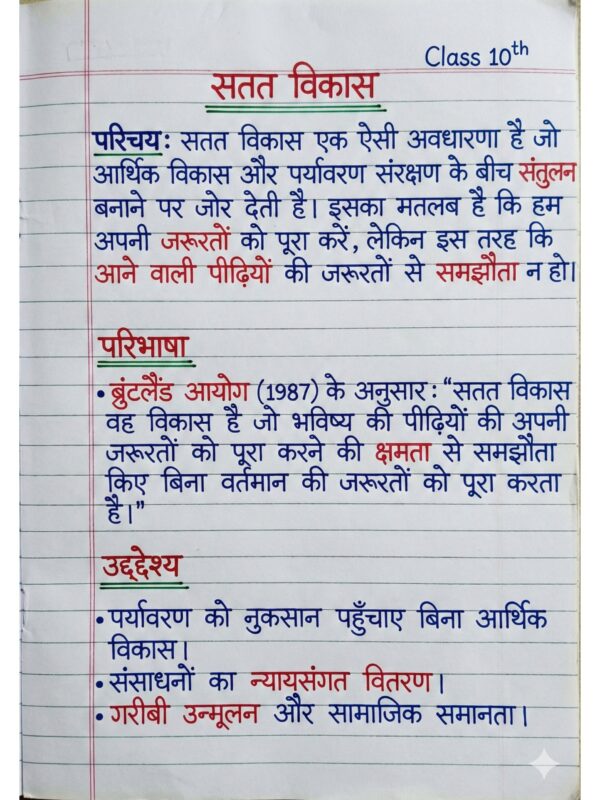 Class 10th
सतत विकास
परिचय: सतत विकास एक ऐसी अवधारणा है जो
आर्थिक विकास और पर्यावरण संरक्षण के बीच संतुलन
बनाने पर जोर देती है। इसका मतलब है कि हम
अपनी जरूरतों को पूरा करें, लेकिन इस तरह कि
आने वाली पीढ़ियों की जरूरतों से समझौता न हो।
परिभाषा
• ब्रुंटलैंड आयोग (1987) के अनुसार : “सतत विकास
वह विकास है जो भविष्य की पीढ़ियों की अपनी
जरूरतों को पूरा करने की क्षमता से समझौता
किए बिना वर्तमान की जरूरतों को पूरा करता
है।”
उद्देश्य
• पर्यावरण को नुकसान पहुँचाए बिना आर्थिक
विकास।
• संसाधनों का न्यायसंगत वितरण।
• गरीबी उन्मूलन और सामाजिक समानता।